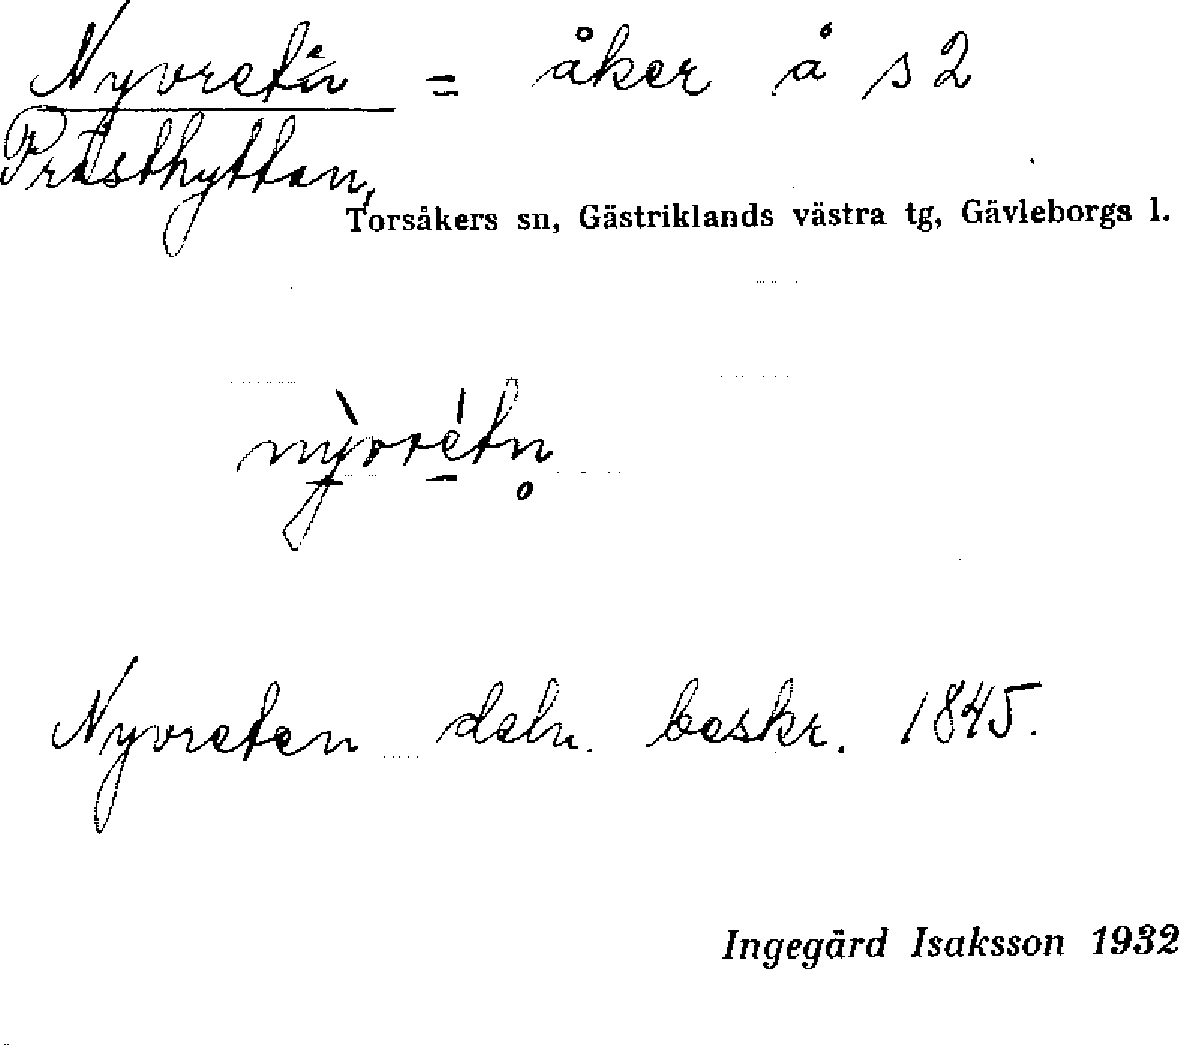 Nyvretån = åker å s 2
Prästhyttan,
Torsåkers sn, Gästriklands västra tg, Gävleborgs l.
nỳvrétn̥
Nyvreten deln. beskr. 1845.
Ingegärd Isaksson 1932